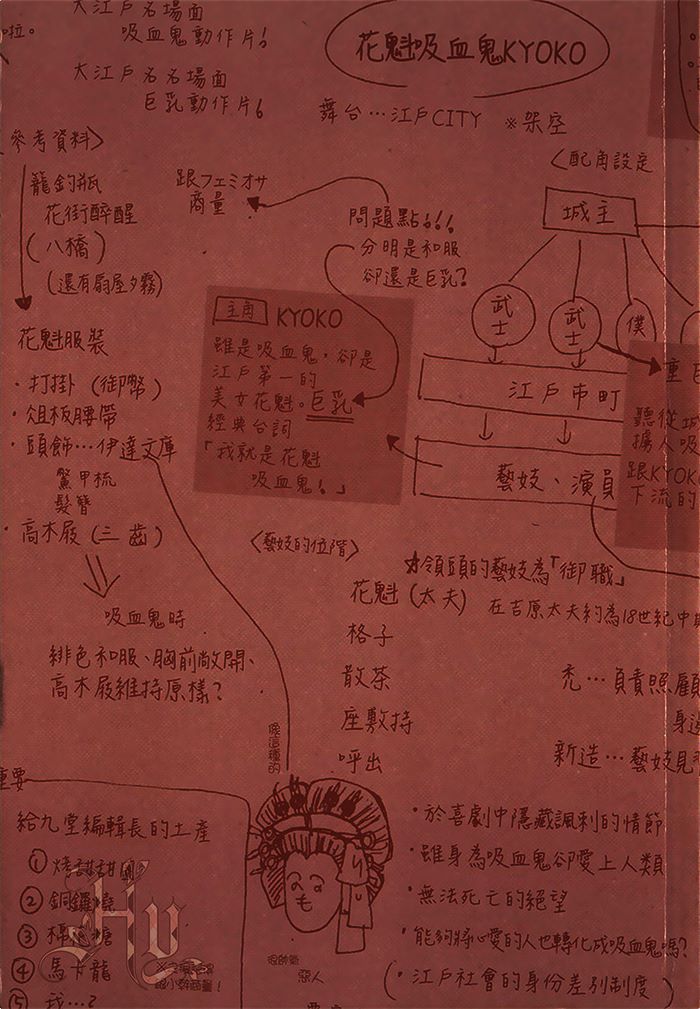 啦。
大江戶名場面
吸血鬼動作片!
大江戶名名場面
巨乳動作片
花魁吸血鬼KYOKO
舞台…江戶CITY ※架空
參考資料>
籠釣瓶
花街醉醒
(八橋)
(還有扇屋夕霧)
跟フェミオサ
商量
問題點!!!
分明是和服
卻還是巨乳?
<配角設定
城主
武士
武士
僕
江戶市町
藝妓、演員
聽從城
擄人吸
跟KYOK
下流的
主角 KYOKO
雖是吸血鬼,卻是
江戶第一的
美女花魁。巨乳
經典台詞
「我就是花魁
吸血鬼!」
花魁服裝
・打掛(御幣)
・俎板腰帶
・頭飾…伊達文庫
鱉甲梳
髮簪
・高木屐(三齒)
吸血鬼時
緋色和服、胸前敞開、
高木屐維持原樣?
<藝妓的位階>
☆領頭的藝妓為「御職」
花魁(太夫) 在吉原太夫約為18世紀中期
格子
散茶
座敷持
呼出
禿…負責照顧
身邊
新造…藝妓見習
像這種的
重要
給九堂編輯長的土產
① 烤甜甜圈
② 銅鑼燒
③ 棉花糖
④ 馬卡龍
⑤ 我…?
Hy
・於喜劇中隱藏諷刺的情節
・雖身為吸血鬼卻愛上人類
・無法死亡的絕望
・能夠將心愛的人也轉化成吸血鬼嗎?
(・江戶社會的身份差別制度)